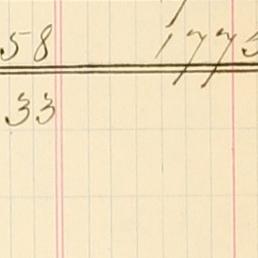 58 1775
33